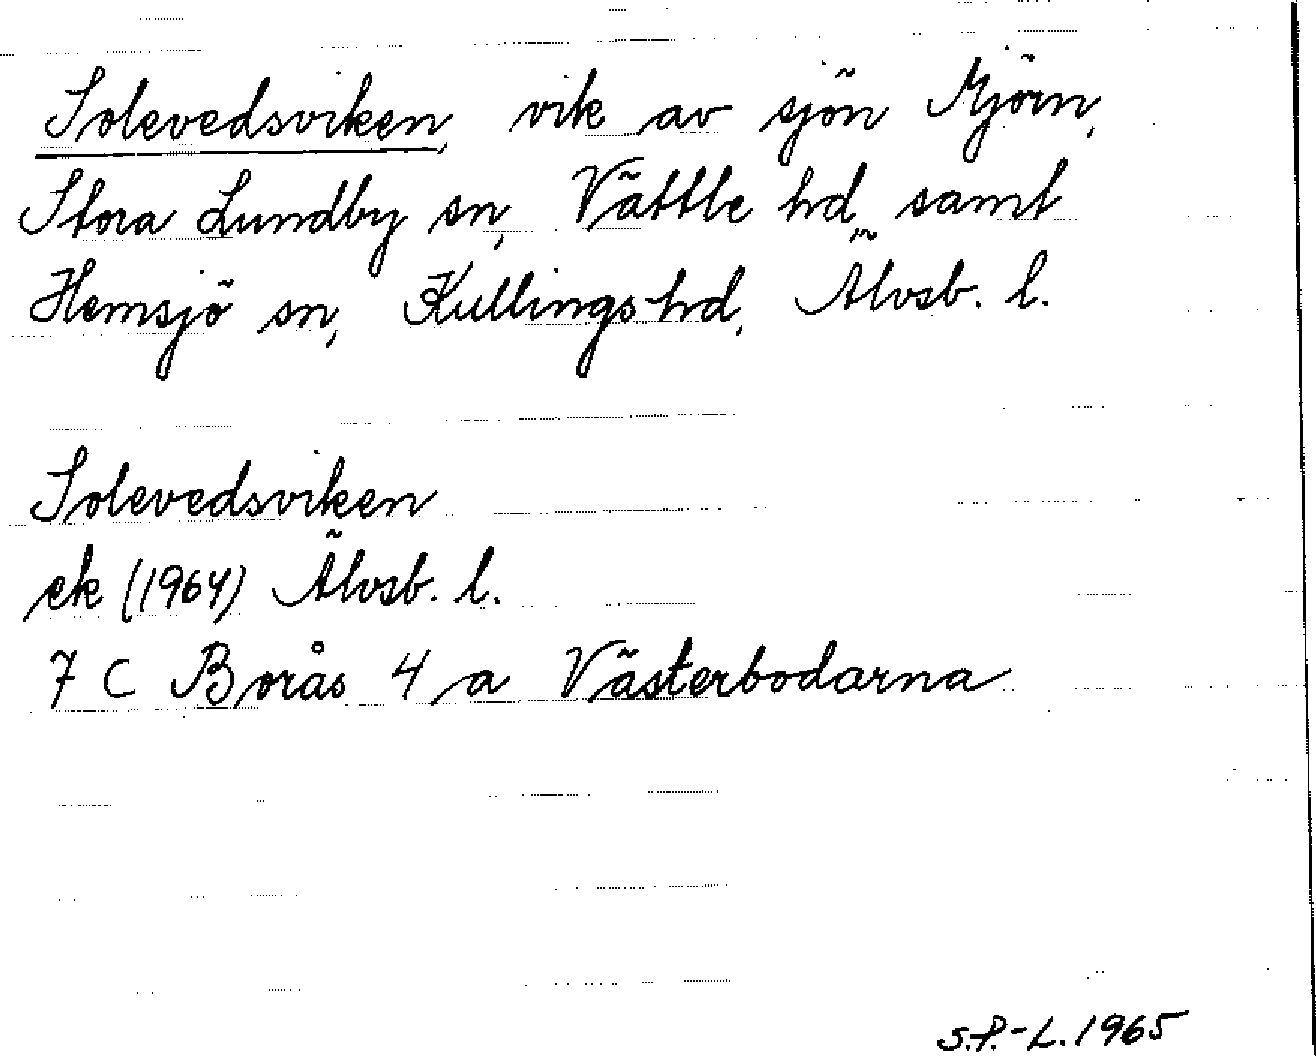 Solevedsviken, vik av sjön Mjörn,
Stora Lundby sn, Vättle hd, samt
Hemsjö sn, Kullings hd, Älvsb. l.
Solevedsviken
ek (1964) Älvsb. l.
7 C Borås 4 a Västerbodarna
S.P.-L. 1965